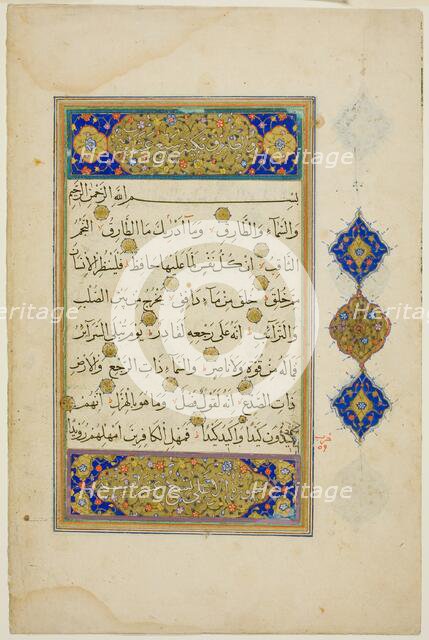 بسم الله الرحمن الرحيم
والسماء والطارق وما ادريك ما الطارق النجم
الثاقب ان كل نفس لما عليها حافظ فلينظر الانسان
مم خلق خلق من ماء دافق يخرج من بين الصلب
والترائب انه على رجعه لقادر يوم تبلى السرائر
فما له من قوة ولا ناصر والسماء ذات الرجع والارض
ذات الصدع انه لقول فصل وما هو بالهزل انهم
يكيدون كيدا واكيد كيدا فمهل الكافرين امهلهم رويدا
حزب
٥٩
Heritage Heritage
Heritage Heritage Heritage
Heritage Heritage
Heritage Heritage Heritage
Heritage Heritage